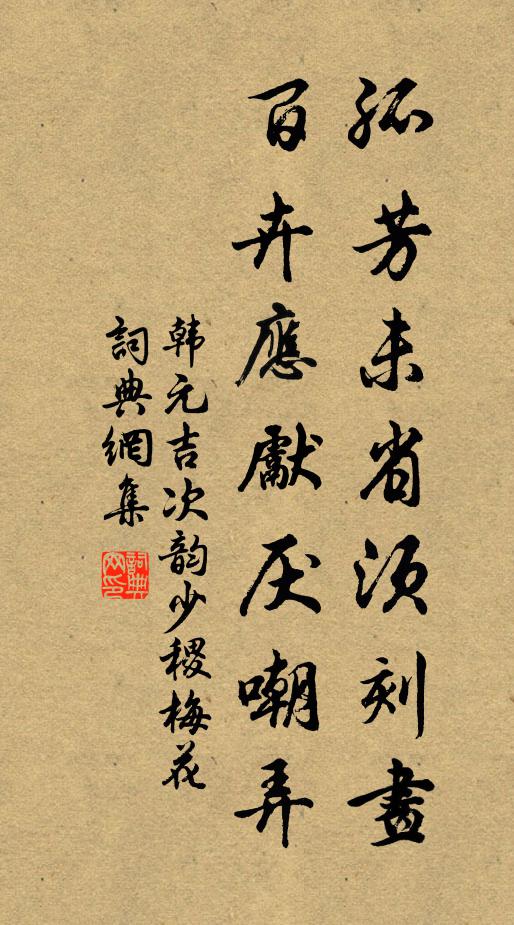 孤芳未省須刻畫
百卉應獻厌嘲弄
韩元吉次韵少稷梅花
詞典網集
詞典網印